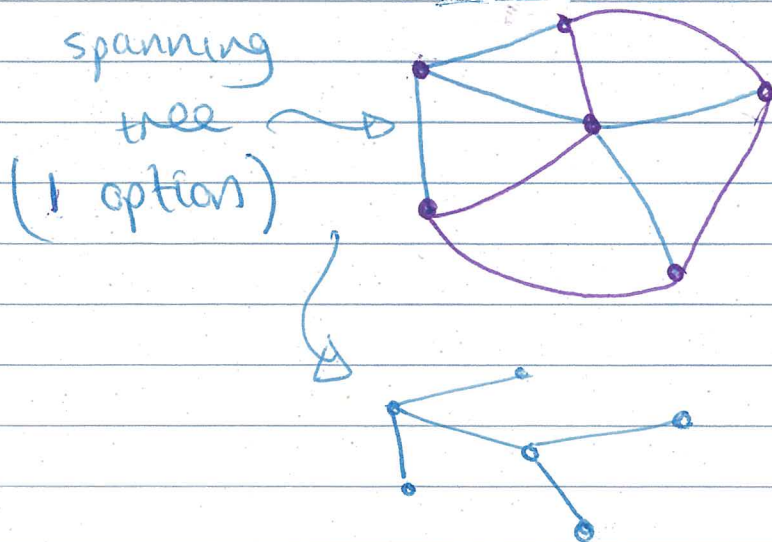 spanning
tree
(1 option)